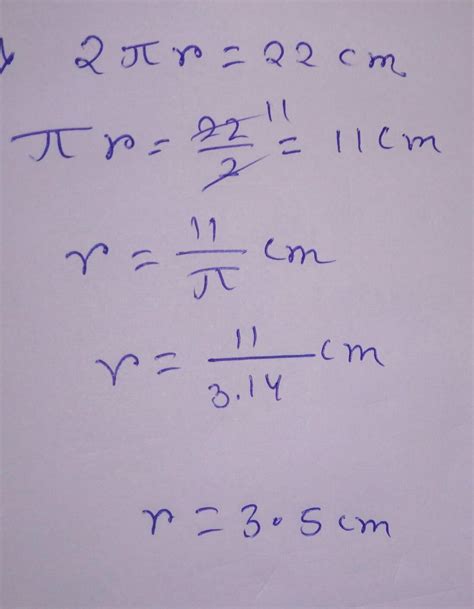 2πr = 22 cm
πr = 22/2 11 = 11 cm
r = 11/π cm
r = 11/3.14 cm
r = 3.5 cm